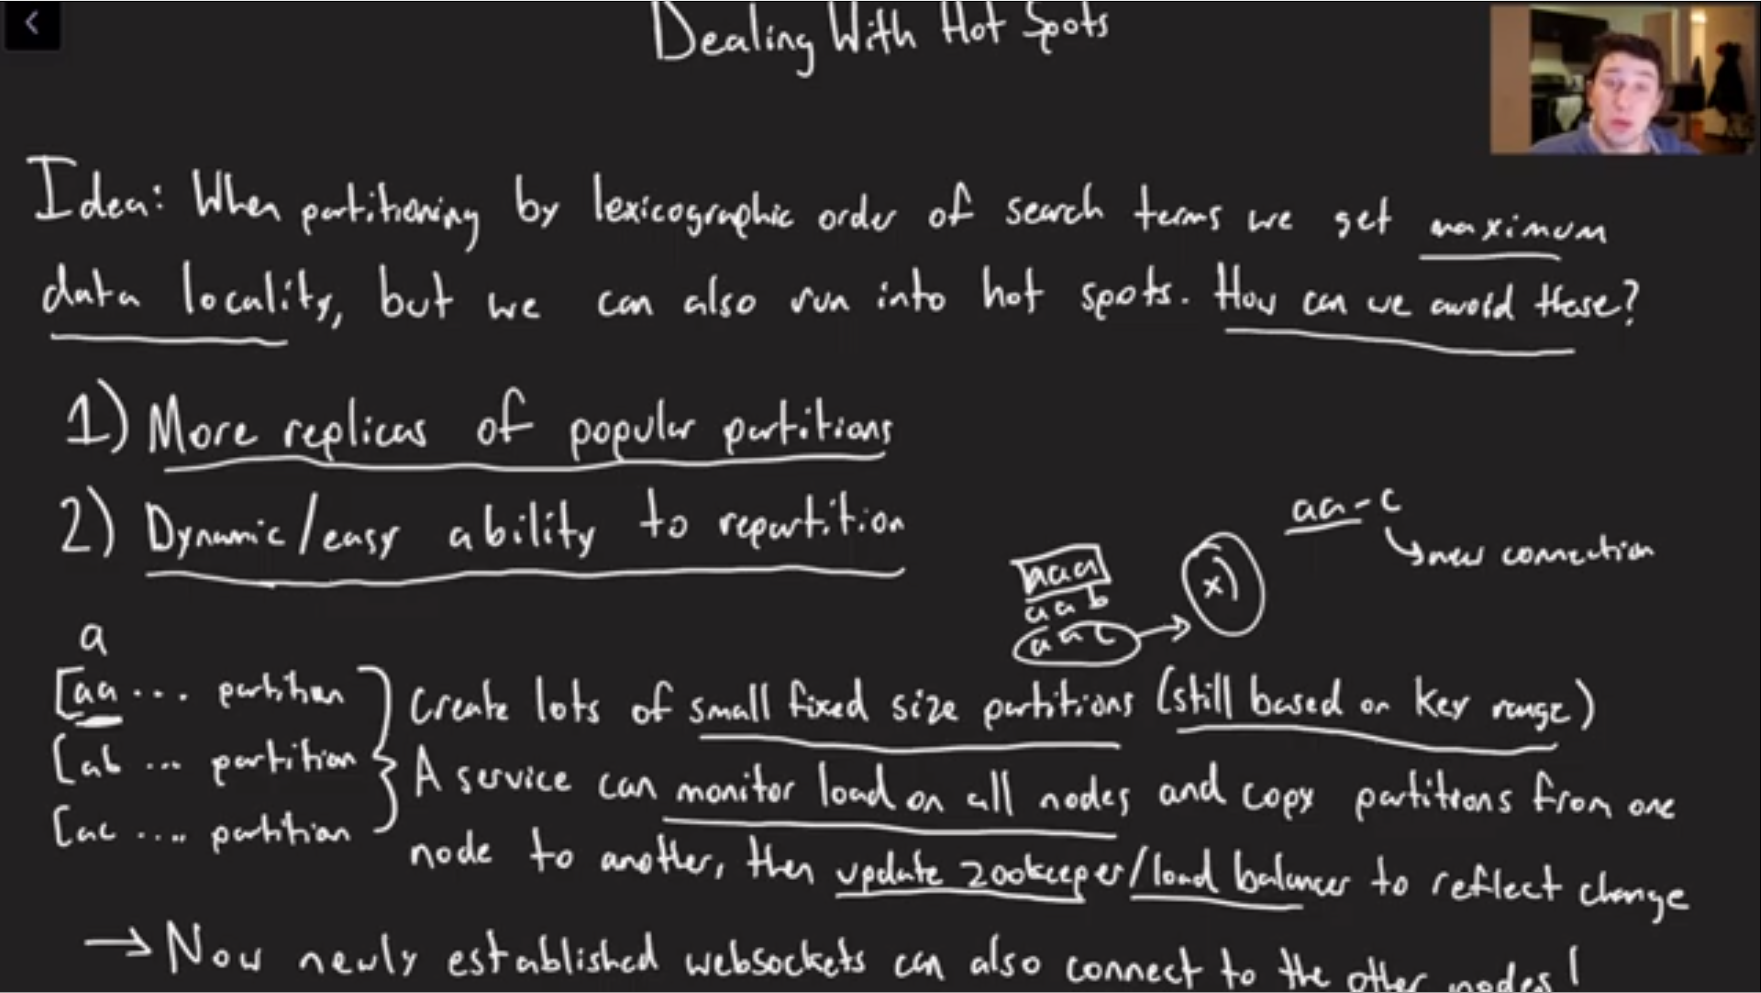 Dealing With Hot Spots
Idea: When partitioning by lexicographic order of search terms we get maximum
data locality, but we can also run into hot spots. How can we avoid these?
1) More replicas of popular partitions
2) Dynamic/easy ability to repartition
aa-c
new connection
aaa
aab
aac
x)
a
[aa... partition
[ab ... partition
[ac .... partition
Create lots of small fixed size partitions (still based on key range)
A service can monitor load on all nodes and copy partitions from one
node to another, then update zookeeper/load balancer to reflect change
→ Now newly established websockets can also connect to the other nodes!